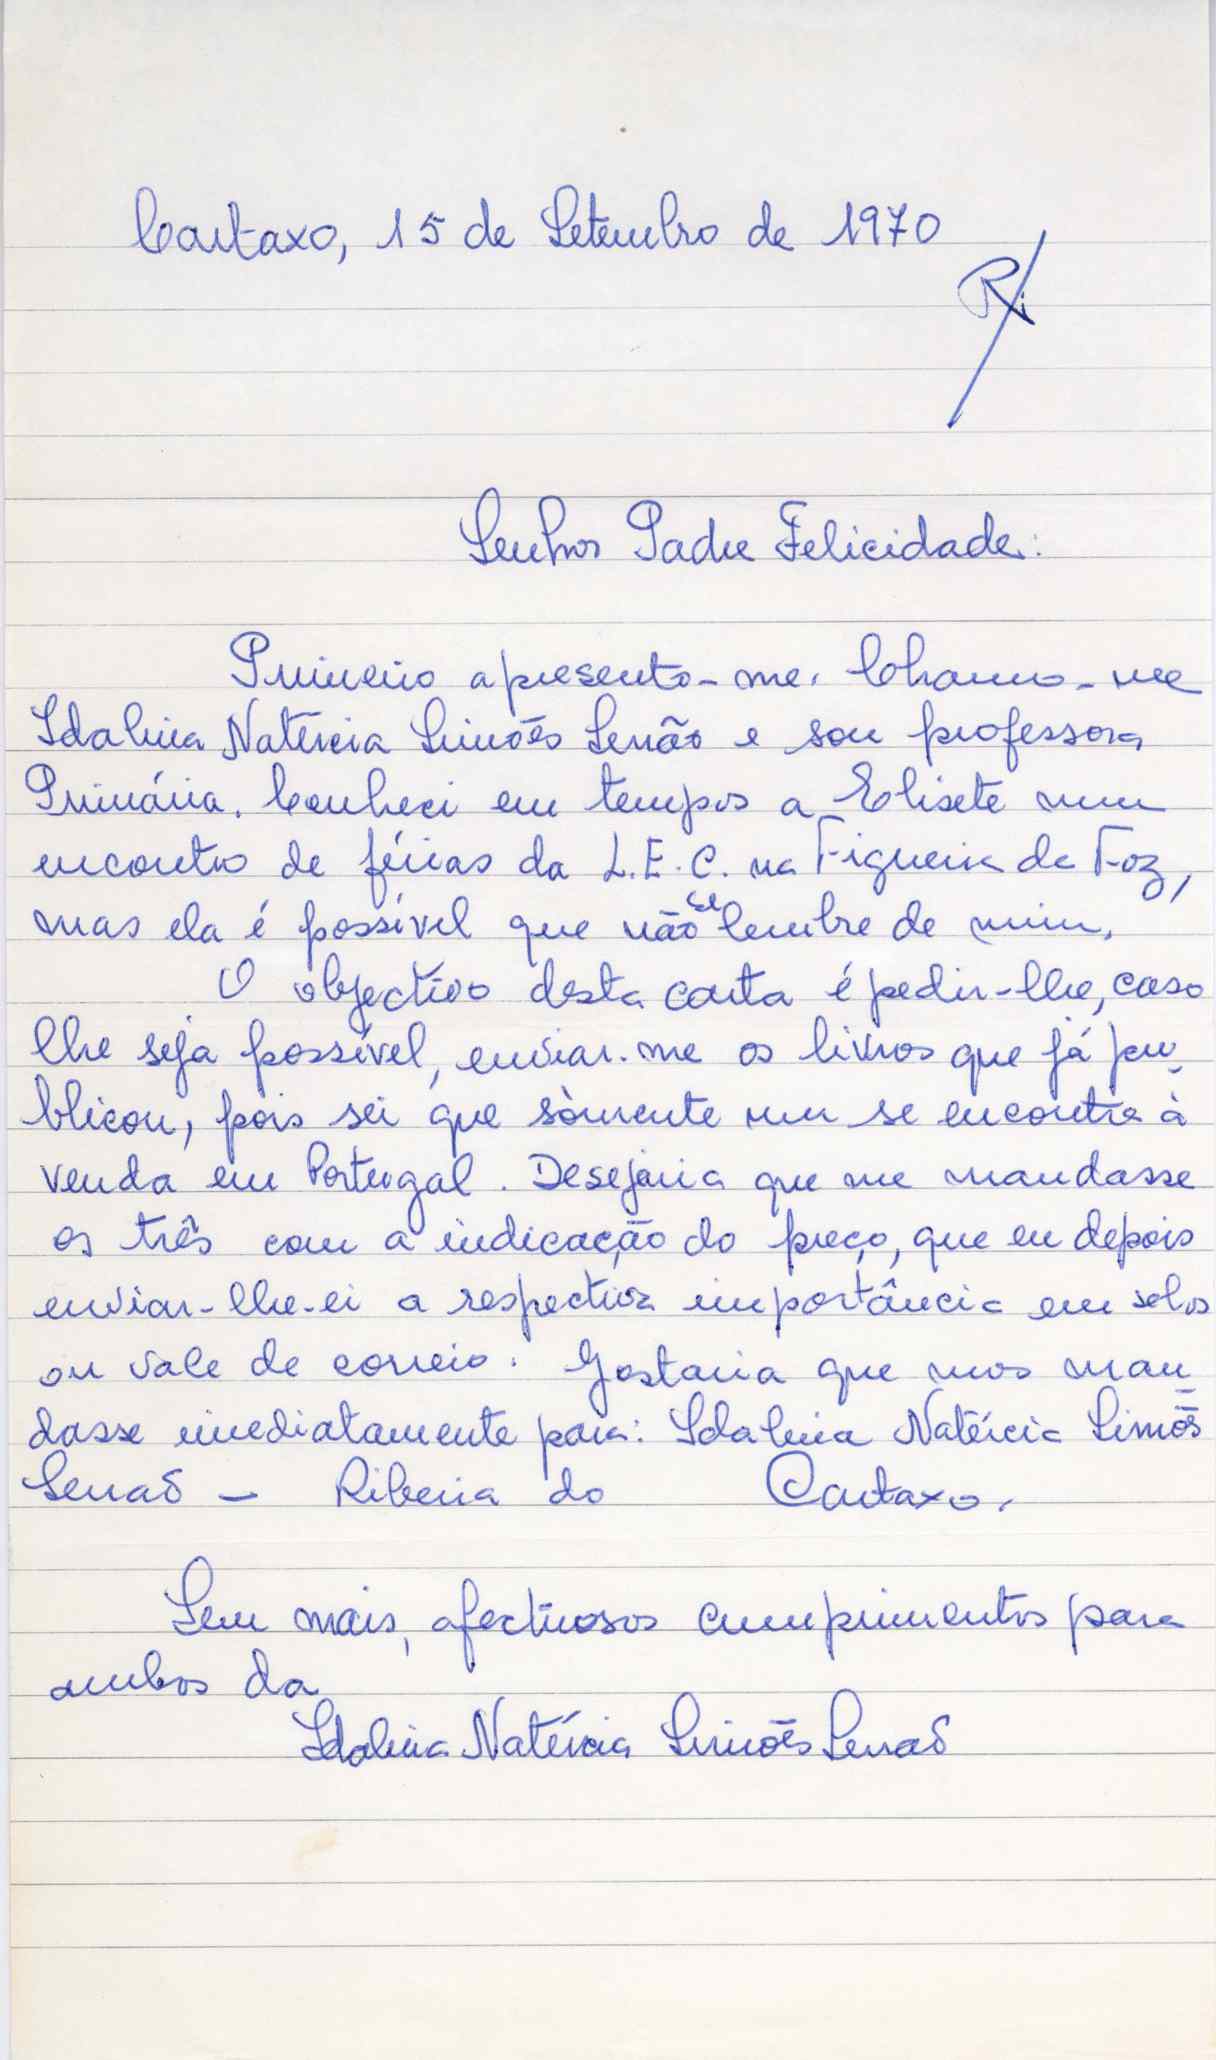 Cartaxo, 15 de Setembro de 1970
Ri
Senhor Padre Felicidade:
Primeiro apresento-me. Chamo-me
Idalina Natércia Simões Serrão e sou professora
Primária. Conheci em tempos a Elisete num
encontro de férias da L.E.C. na Figueira da Foz,
mas ela é possível que não se lembre de mim.
O objectivo desta carta é pedir-lhe, caso
lhe seja possível, enviar-me os livros que já pu-
blicou, pois sei que sòmente um se encontra à
venda em Portugal. Desejaria que me mandasse
os três com a indicação do preço, que eu depois
enviar-lhe-ei a respectiva importância em selos
ou vale de correio. Gostaria que mos man-
dasse imediatamente para: Idalina Natércia Simões
Serrão - Ribeira do Cartaxo.
Sem mais, afectuosos cumprimentos para
ambos da
Idalina Natércia Simões Serrão